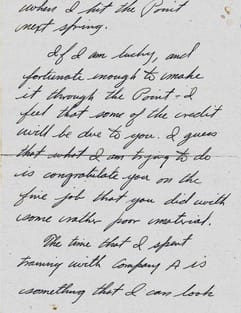 when I hit the Point
next spring.
If I am lucky, and
fortunate enough to make
it through the Point - I
feel that some of the credit
will be due to you. I guess
that what I am trying to do
is congratulate you on the
fine job that you did with
some rather poor material.
The time that I spent
training with Company A is
something that I can look